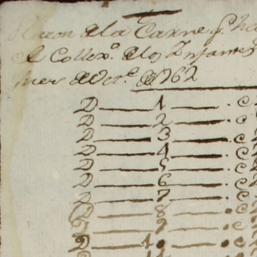 Razon de la Carne q.e ha
el Collex.o de los Infantes
mes de Oct.e de 1762
D — 1 — . C
D — 2 — . C
D — 3 — . C
D — 4 — . C
D — 5 — . C
D — 6 — . C
D — 7 — . C
D — 8 — . C
D — 9 — . C
D — 10 — . C